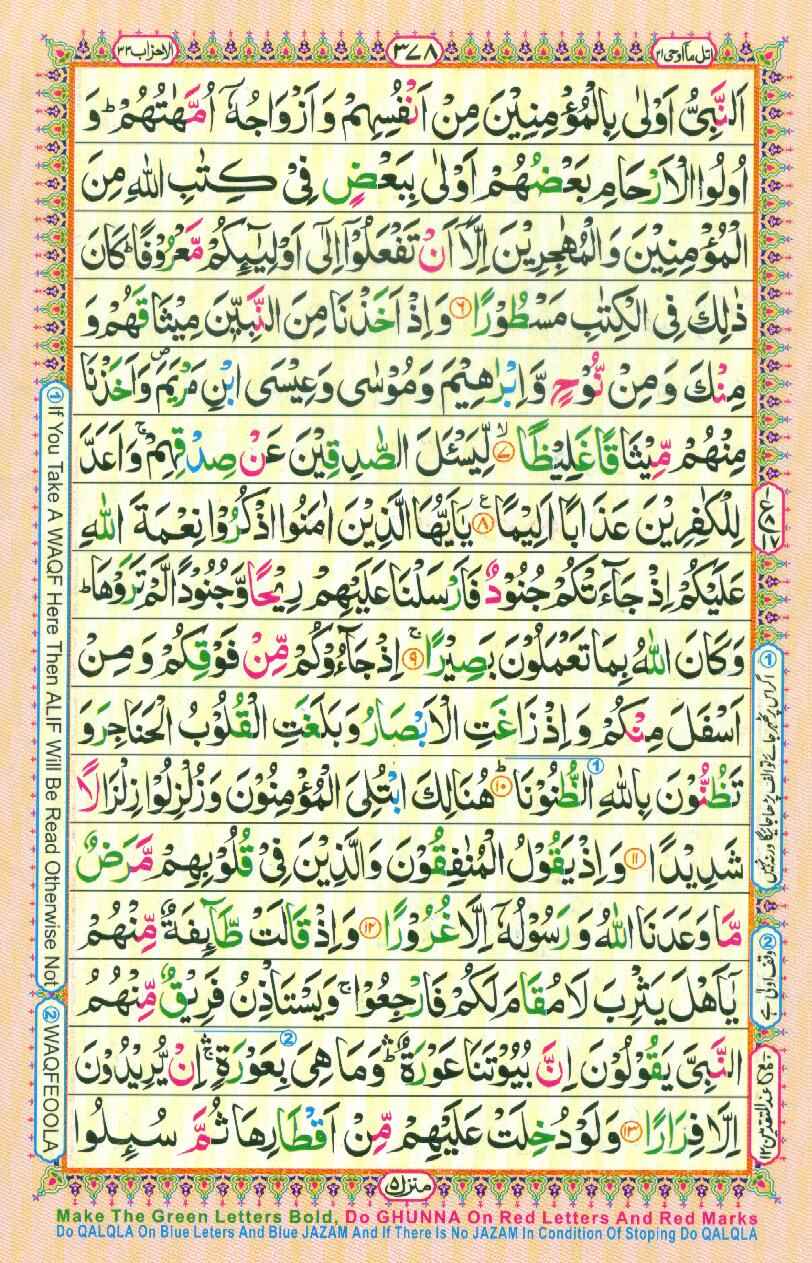 اتل ما اوحی ۲۱
۳۷۸
الاحزاب ۳۳
اَلنَّبِیُّ اَوْلٰی بِالْمُؤْمِنِیْنَ مِنْ اَنْفُسِهِمْ وَ اَزْوَاجُهٗۤ اُمَّهٰتُهُمْ ؕ وَ
اُولُوا الْاَرْحَامِ بَعْضُهُمْ اَوْلٰی بِبَعْضٍ فِیْ كِتٰبِ اللّٰهِ مِنَ
الْمُؤْمِنِیْنَ وَ الْمُهٰجِرِیْنَ اِلَّاۤ اَنْ تَفْعَلُوْۤا اِلٰۤی اَوْلِیٰٓئِكُمْ مَّعْرُوْفًا ؕ كَانَ
ذٰلِكَ فِی الْكِتٰبِ مَسْطُوْرًا ۶ وَ اِذْ اَخَذْنَا مِنَ النَّبِیّٖنَ مِیْثَاقَهُمْ وَ
مِنْكَ وَ مِنْ نُّوْحٍ وَّ اِبْرٰهِیْمَ وَ مُوْسٰی وَ عِیْسَی ابْنِ مَرْیَمَ ۪ وَ اَخَذْنَا
مِنْهُمْ مِّیْثَاقًا غَلِیْظًا ۷ لِّیَسْـَٔلَ الصّٰدِقِیْنَ عَنْ صِدْقِهِمْ ۚ وَ اَعَدَّ
لِلْكٰفِرِیْنَ عَذَابًا اَلِیْمًا ۸ یٰۤاَیُّهَا الَّذِیْنَ اٰمَنُوا اذْكُرُوْا نِعْمَةَ اللّٰهِ
عَلَیْكُمْ اِذْ جَآءَتْكُمْ جُنُوْدٌ فَاَرْسَلْنَا عَلَیْهِمْ رِیْحًا وَّ جُنُوْدًا لَّمْ تَرَوْهَا ؕ
وَ كَانَ اللّٰهُ بِمَا تَعْمَلُوْنَ بَصِیْرًا ۹ اِذْ جَآءُوْكُمْ مِّنْ فَوْقِكُمْ وَ مِنْ
اَسْفَلَ مِنْكُمْ وَ اِذْ زَاغَتِ الْاَبْصَارُ وَ بَلَغَتِ الْقُلُوْبُ الْحَنَاجِرَ وَ
تَظُنُّوْنَ بِاللّٰهِ الظُّنُوْنَا ۱۰ هُنَالِكَ ابْتُلِیَ الْمُؤْمِنُوْنَ وَ زُلْزِلُوْا زِلْزَالًا
شَدِیْدًا ۱۱ وَ اِذْ یَقُوْلُ الْمُنٰفِقُوْنَ وَ الَّذِیْنَ فِیْ قُلُوْبِهِمْ مَّرَضٌ
مَّا وَعَدَنَا اللّٰهُ وَ رَسُوْلُهٗۤ اِلَّا غُرُوْرًا ۱۲ وَ اِذْ قَالَتْ طَّآئِفَةٌ مِّنْهُمْ
یٰۤاَهْلَ یَثْرِبَ لَا مُقَامَ لَكُمْ فَارْجِعُوْا ۚ وَ یَسْتَاْذِنُ فَرِیْقٌ مِّنْهُمُ
النَّبِیَّ یَقُوْلُوْنَ اِنَّ بُیُوْتَنَا عَوْرَةٌ ۛؕ وَ مَا هِیَ بِعَوْرَةٍ ۛۚ اِنْ یُّرِیْدُوْنَ
اِلَّا فِرَارًا ۱۳ وَ لَوْ دُخِلَتْ عَلَیْهِمْ مِّنْ اَقْطَارِهَا ثُمَّ سُىِٕلُوا
منزل ۵
① If You Take A WAQF Here Then ALIF Will Be Read Otherwise Not
② WAQFEOOLA
Make The Green Letters Bold, Do GHUNNA On Red Letters And Red Marks
Do QALQLA On Blue Leters And Blue JAZAM And If There Is No JAZAM In Condition Of Stoping Do QALQLA